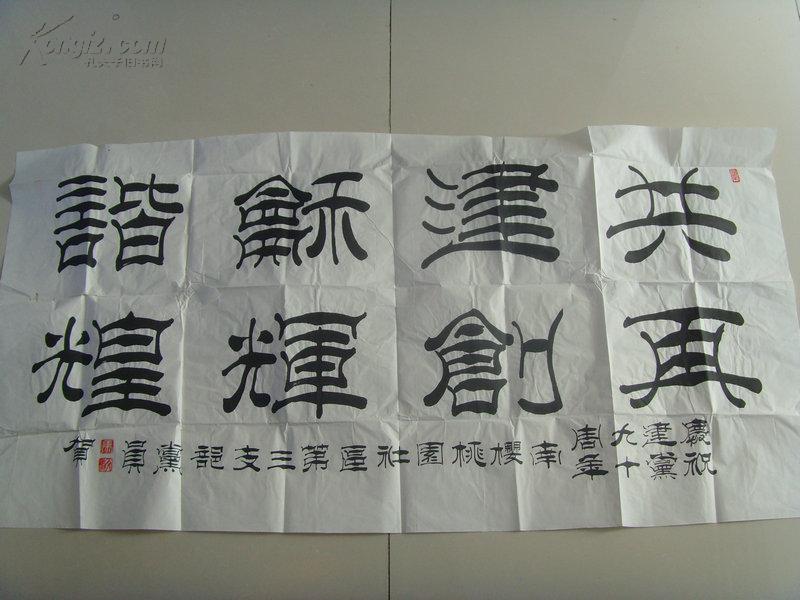 共建龢諧
再創輝煌
慶祝建黨九十周年南櫻桃園社區第三支部黨員賀
Kongfz.com
孔夫子旧书网